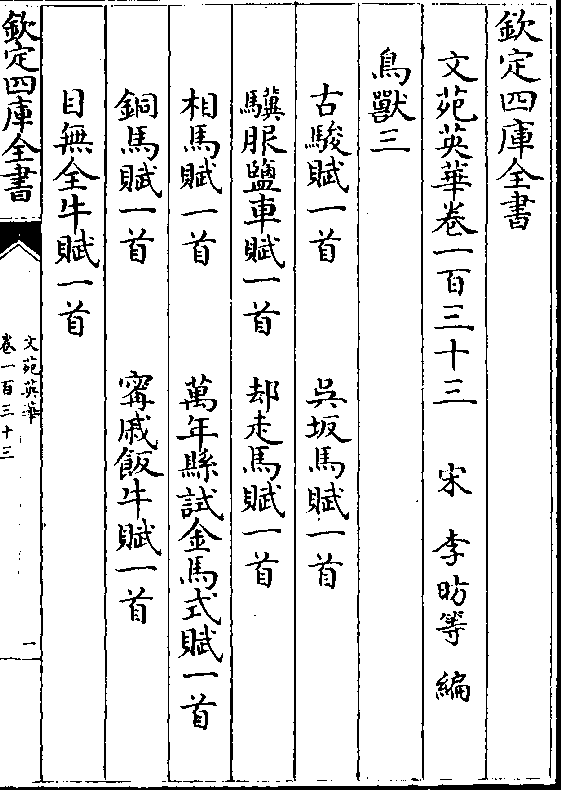 欽定四庫全書
文苑英華卷一百三十三　宋　李昉等　編
鳥獸三
古駿賦一首　吳坂馬賦一首
驥服鹽車賦一首　却走馬賦一首
相馬賦一首　萬年縣試金馬式賦一首
銅馬賦一首　甯戚飯牛賦一首
目無全牛賦一首
欽定四庫全書
文苑英華
卷一百三十三
一